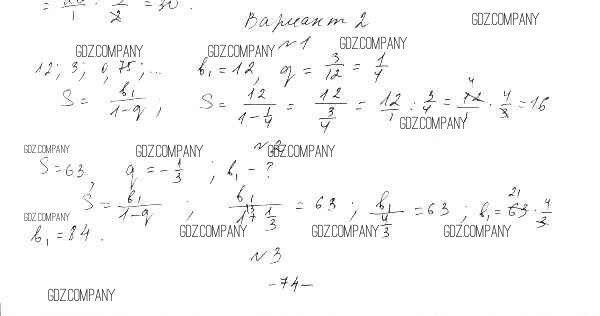 = 30.
Вариант 2
GDZ.COMPANY
GDZ.COMPANY GDZ.COMPANY №1 GDZ.COMPANY
12; 3; 0,75; ... b₁ = 12, q = 3/12 = 1/4
S = b₁/(1-q); S = 12/(1-1/4) = 12/(3/4) = 12/1 : 3/4 = 12/1 · 4/3 = 16
GDZ.COMPANY
GDZ.COMPANY GDZ.COMPANY №2 GDZ.COMPANY
S = 63, q = -1/3; b₁ - ?
S = b₁/(1-q); b₁/(1+1/3) = 63; b₁/(4/3) = 63; b₁ = 63 · 4/3
GDZ.COMPANY
b₁ = 84. GDZ.COMPANY GDZ.COMPANY GDZ.COMPANY
№3
-74-
GDZ.COMPANY